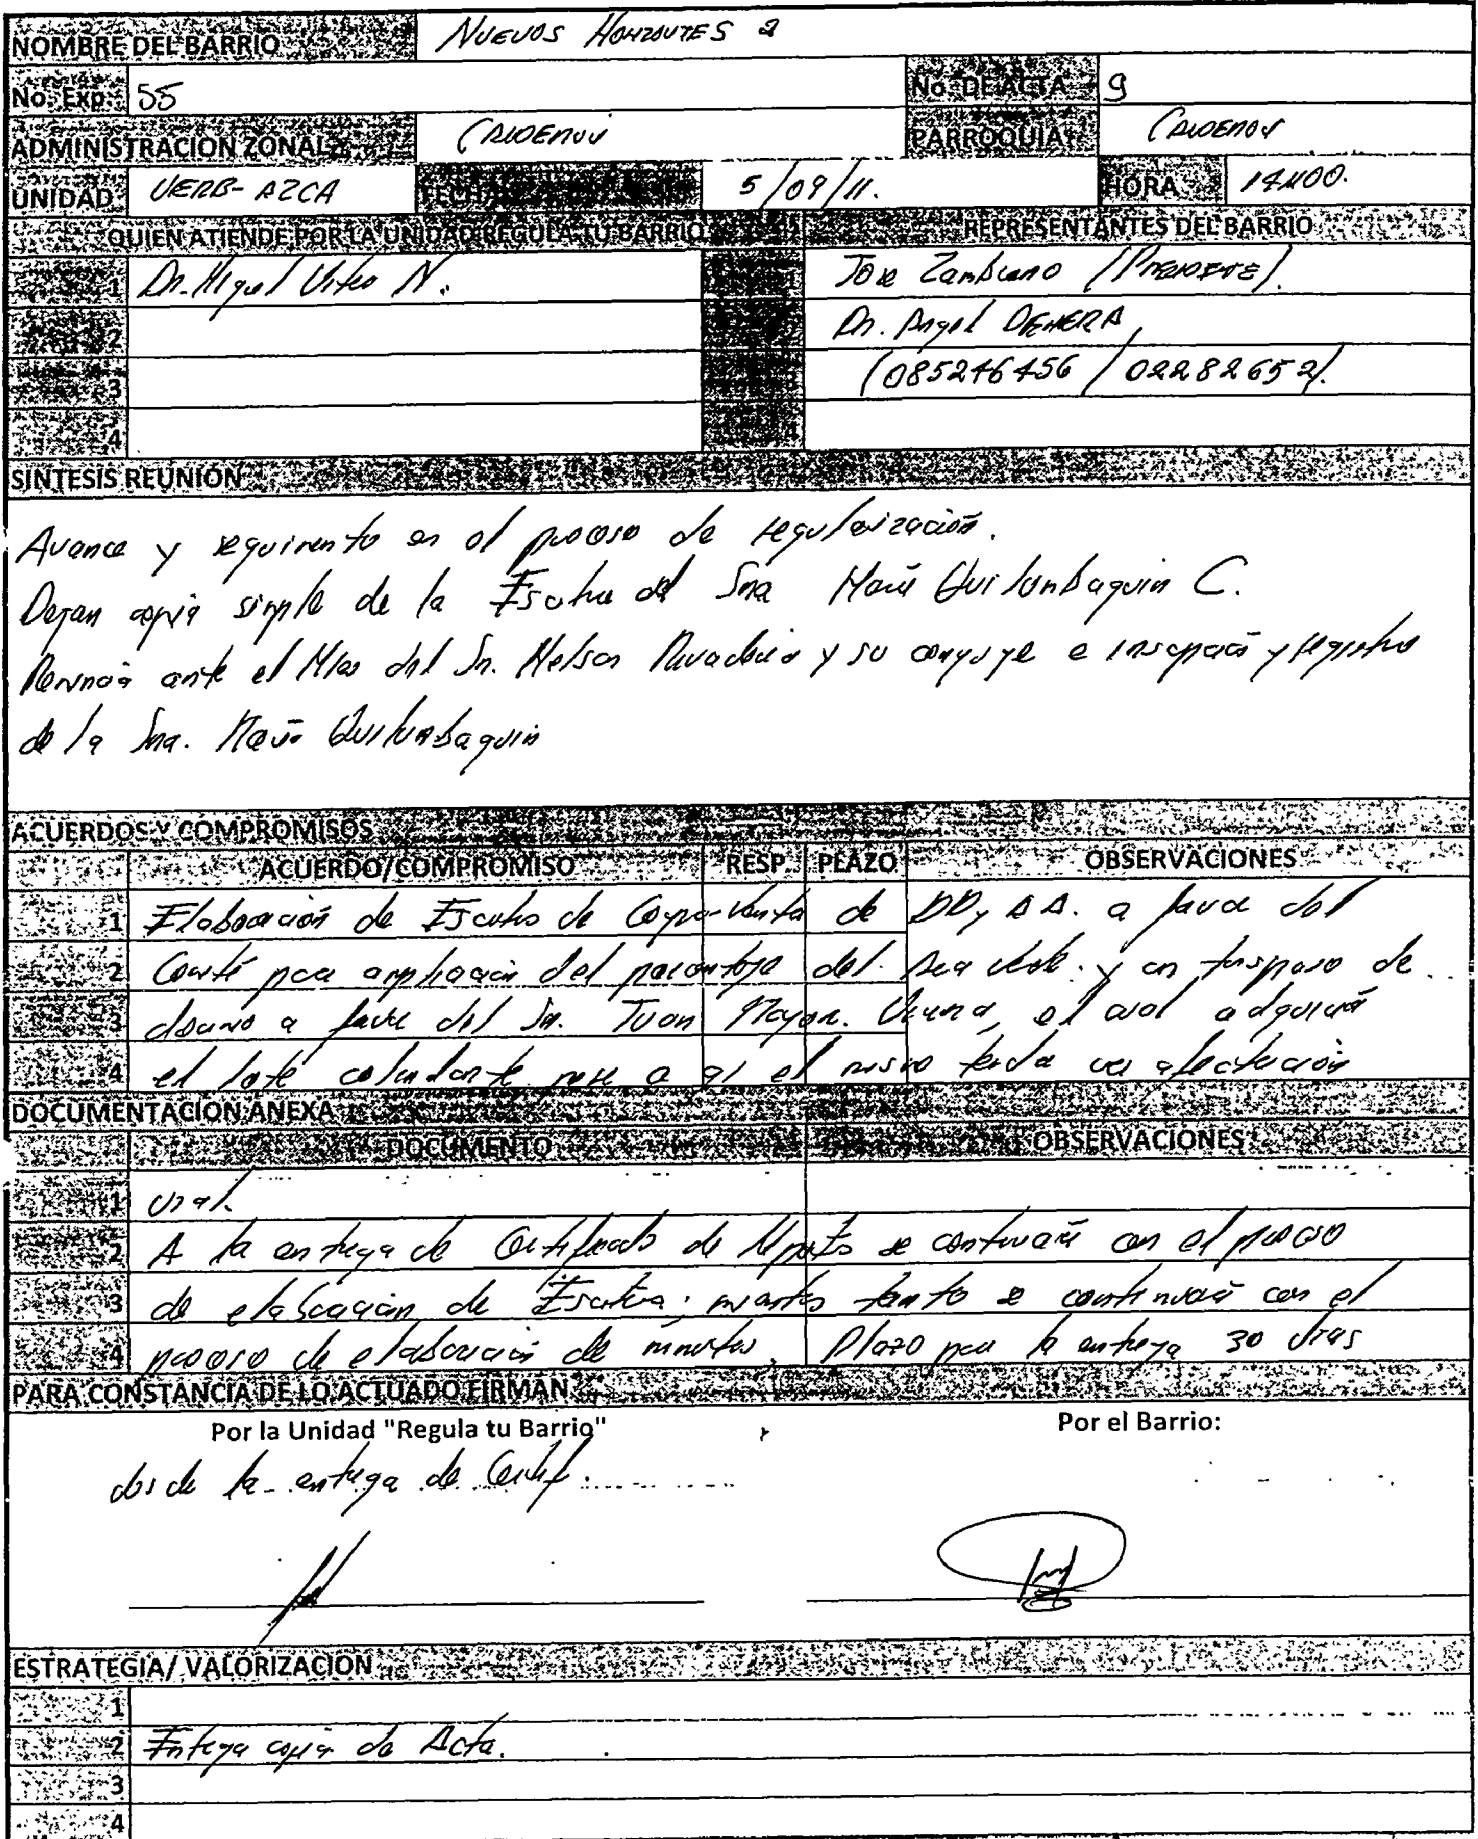 NOMBRE DEL BARRIO NUEVOS HORIZONTES 2
No. Exp. 55 No. DE ACTA 9
ADMINISTRACION ZONAL CALDERON PARROQUIA CALDERON
UNIDAD UERB-AZCA FECHA 5/09/11. HORA 14H00.
QUIEN ATIENDE POR LA UNIDAD REGULA TU BARRIO REPRESENTANTES DEL BARRIO
1 Dr. Miguel N. Jose Zambrano (Presidente).
2 Dr. Angel
3 (085246456 / 02282652).
4
SINTESIS REUNION
Avance y seguimiento en el proceso de regularización.
Dejan copia simple de la Escritura del Sra María Quilumbaquin C.
ante el del Sr. Nelson y su conyuge e inscripción y registro
de la Sra. María Quilumbaquin
ACUERDOS Y COMPROMISOS
ACUERDO/COMPROMISO RESP. PLAZO OBSERVACIONES
1 Elaboración de Escritura de Compra-Venta de DD, AA. a favor del
2 Comité para ampliación del porcentaje del Area verde. y un traspaso de
3 a favor del Sr. Juan el cual adquirirá
4 el lote colindante pese a q' el mismo tenda afectación
DOCUMENTACION ANEXA
DOCUMENTO OBSERVACIONES
1 vial.
2 A la entrega de Certificado de se continuará con el proceso
3 de elaboración de Escritura; tanto se continuará con el
4 proceso de elaboración de minutas. Plazo para la entrega 30 dias
PARA CONSTANCIA DE LO ACTUADO FIRMAN
Por la Unidad "Regula tu Barrio" Por el Barrio:
desde la entrega de Certif.
ESTRATEGIA/ VALORIZACION
1
2 Entrega copia de Acta.
3
4